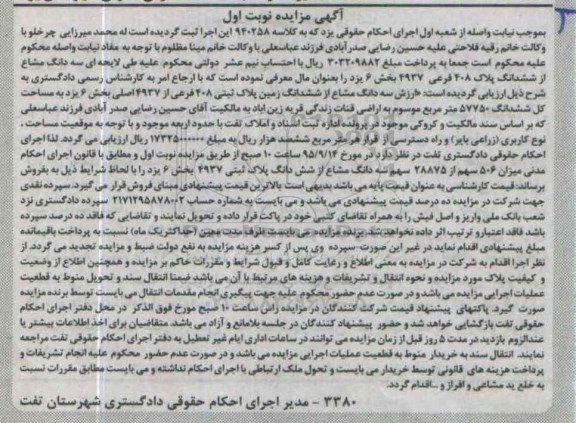 آگهی مزایده نوبت اول
بموجب نیابت واصله از شعبه اول اجرای احکام حقوقی یزد که به کلاسه ۹۴۰۲۵۸ این اجرا ثبت گردیده است له محمد میرزایی چرخلو با
وکالت خانم رقیه فلاحتی علیه حسین رضایی صدرآبادی فرزند عباسعلی با وکالت خانم مینا مظلوم با توجه به مفاد نیابت واصله محکوم
علیه محکوم است جمعا به پرداخت مبلغ ۳۰۳۲۰۹۸۸۲ ریال با احتساب نیم عشر دولتی محکوم علیه طی لایحه ای سه دانگ مشاع
از ششدانگ پلاک ۴۰۸ فرعی ۴۹۳۷ بخش ۶ یزد را بعنوان مال معرفی نموده است که با ارجاع امر به کارشناس رسمی دادگستری به
شرح ذیل ارزیابی گردیده است: «ارزش سه دانگ مشاع از ششدانگ زمین پلاک ثبتی ۴۰۸ فرعی از ۴۹۳۷ اصلی بخش ۶ یزد به مساحت
کل ششدانگ ۵۷۷۵۰ متر مربع موسوم به اراضی قنات زندگی قریه زین اباد به مالکیت آقای حسین رضایی صدر آبادی فرزند عباسعلی
که بر اساس سند مالکیت و کروکی موجود در پرونده اداره ثبت اسناد و املاک تفت با حدود اربعه موجود و با توجه به موقعیت مساحت،
نوع کاربری (زراعی بایر) و راه دسترسی از قرار هر متر مربع ششصد هزار ریال به مبلغ ۱۷۳۲۵۰۰۰۰۰۰ ریال ارزیابی می گردد. لذا اجرای
احکام حقوقی دادگستری تفت در نظر دارد در مورخ ۹۵/۹/۱۴ ساعت ۱۰ صبح از طریق مزایده نوبت اول و مطابق با قانون اجرای احکام
مدنی میزان ۵۰۶ سهم از ۲۸۸۷۵ سهم سه دانگ مشاع از شش دانگ پلاک ثبتی ۴۹۳۷ بخش ۶ یزد را با لحاظ شرایط ذیل به بفروش
برساند: قیمت کارشناسی به عنوان قیمت پایه می باشد بدیهی است بالاترین قیمت پیشنهادی مبنای فروش قرار می گیرد. سپرده نقدی
جهت شرکت در مزایده ده درصد قیمت پیشنهادی می باشد و می بایست به شماره حساب ۲۱۷۱۲۹۵۸۷۸۰۰۲ سپرده دادگستری نزد
شعب بانک ملی واریز و اصل فیش را به همراه تقاضای کتبی خود در پاکت قرار داده و تحویل نمایند و تقاضایی که فاقد ده درصد سپرده
باشد فاقد اعتبار و ترتیب اثر داده نخواهد شد برنده مزایده می بایست ظرف مدت معین (حداکثر یک ماه) نسبت به پرداخت باقیمانده
مبلغ پیشنهادی اقدام نماید در غیر این صورت سپرده وی پس از کسر هزینه مزایده به نفع دولت ضبط و مزایده تجدید می گردد. از
نظر اجرا اقدام به شرکت در مزایده به معنی اطلاع و رعایت کامل و قبول شرایط و مقررات حاکم بر مزایده و همچنین اطلاع از وضعیت
و کیفیت پلاک مورد مزایده و نحوه انتقال و تشریفات و هزینه های مرتبط با آن می باشد ضمنا انتقال سند و تحویل منوط به قطعیت
عملیات اجرایی مزایده می باشد و در صورت عدم حضور محکوم علیه جهت پیگیری انجام مقدمات انتقال می بایست توسط برنده مزایده
صورت گیرد. پاکتهای پیشنهاد قیمت شرکت کنندگان در مزایده راس ساعت ۱۰ صبح مورخ فوق الذکر در محل دفتر اجرای احکام
حقوقی تفت بازگشایی خواهد شد و حضور پیشنهاد کنندگان در جلسه بلامانع و آزاد می باشد. متقاضیان برای اخذ اطلاعات بیشتر یا
عندالزوم بازدید در مدت ۵ روز قبل از زمان مزایده می توانند در ساعات اداری ایام غیر تعطیل به دفتر اجرای احکام حقوقی تفت مراجعه
نمایند. انتقال سند به خریدار منوط به قطعیت عملیات اجرایی مزایده می باشد و در صورت عدم حضور محکوم علیه انجام تشریفات و
پرداخت هزینه های قانونی توسط خریدار می بایست و تحول ملک ارتباطی با اجرای احکام نداشته و می بایست مطابق مقررات نسبت
به خلع ید مشاعی و افراز و ... اقدام گردد.
۳۳۸۰ - مدیر اجرای احکام حقوقی دادگستری شهرستان تفت